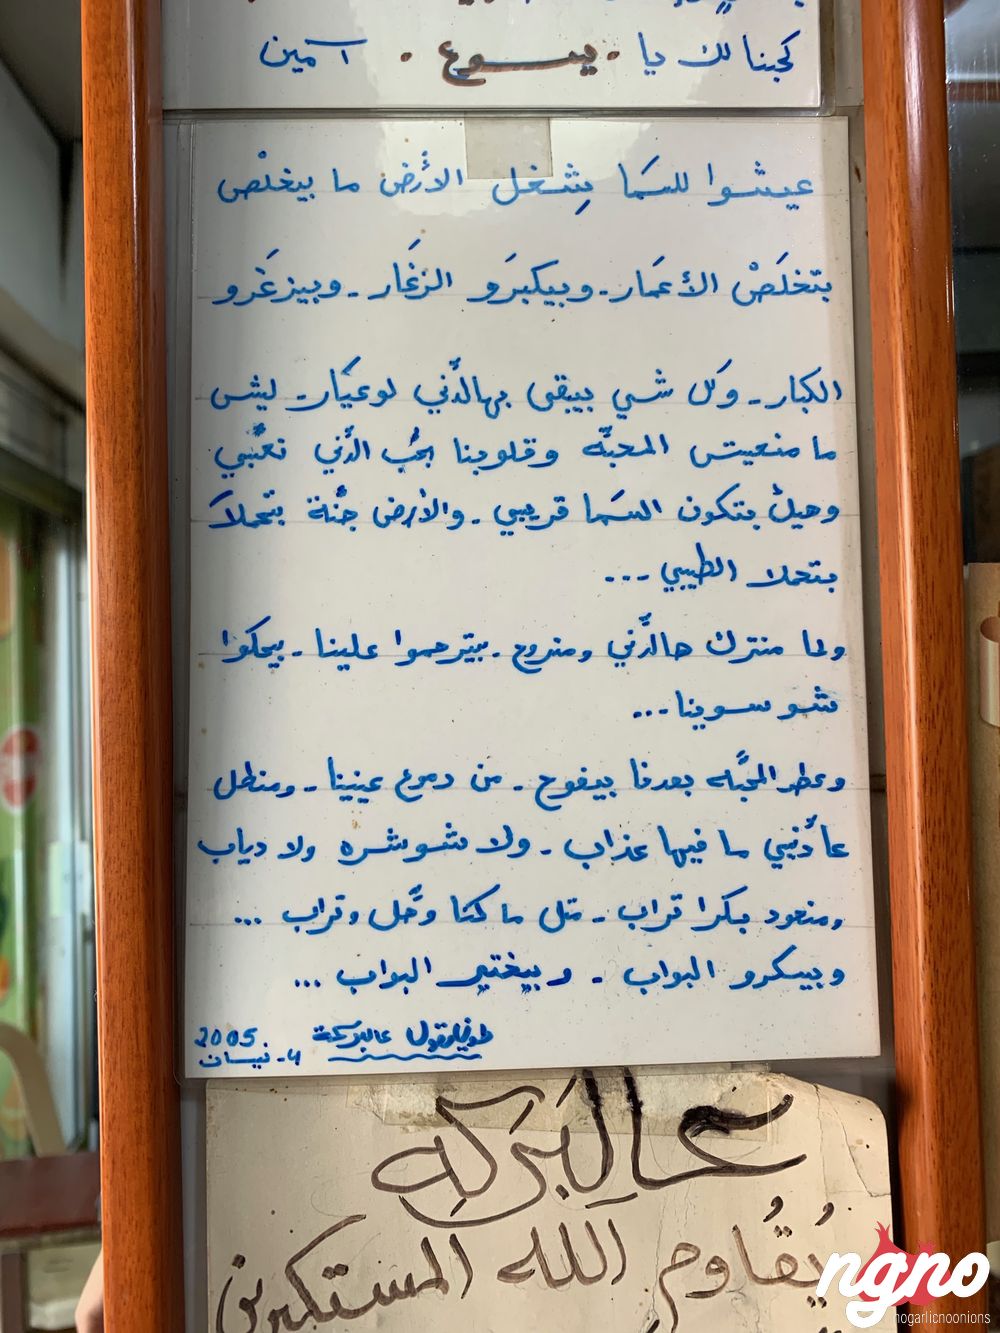 كحبنا لك يا . يسوع . آمين
عيشوا للسَما بِشغل الأرض ما بيخلْص
بتخلَصْ الأعمَار - وبيكبرَو الزغَار - وبيزغَرو
الكبار - وكل شي بيبقى بهالدِّني لوعيَار - ليش
ما منعيش المحبّه وقلوبنا بحُب الدِّني تعبّي
وهيك بتكون السمَا قريبي - والأرض جنّة بتحلاَ
بتحلا الطيبي ...
ولما منترك هالدِّني ومنروح - بيترحموا علينا - بيحكوا
شو سوينا ...
وعطر المحبّه بعدها بيفوح - من دموع عينينا - ومنطل
عا دِّنيي ما فيها عذاب - ولا شوشره ولا دياب
ومنعود بكرا قراب - متل ما كنا وحَّل وقراب ...
وبيسكرو البواب - وبيختير البواب ...
عالبركة
2005
٤ - نيسان
عالبَركِه
يُقُاوم الله المستكبرين
ngno
nogarlicnoonions